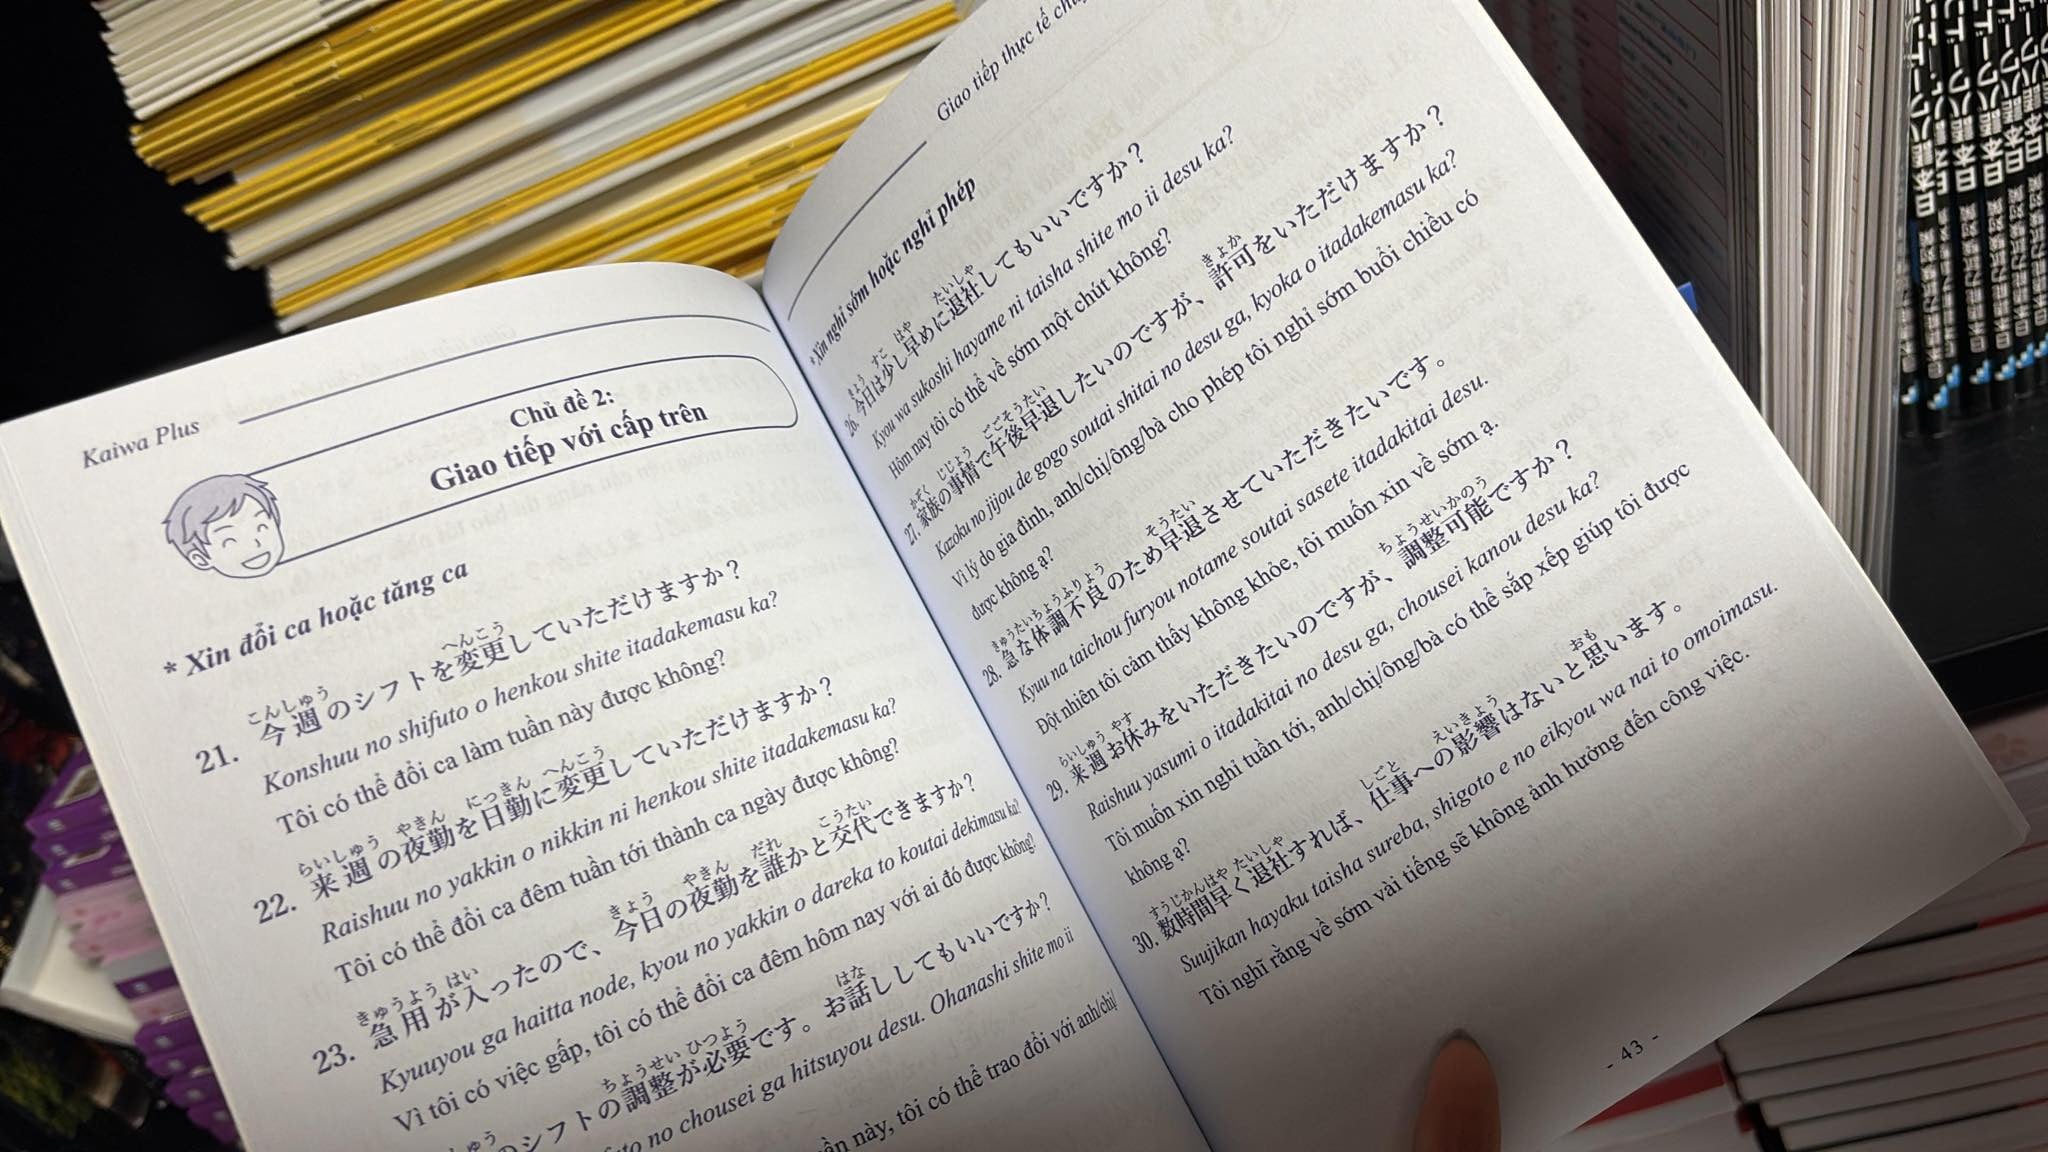 Kaiwa Plus
Chủ đề 2:
Giao tiếp với cấp trên
* Xin đổi ca hoặc tăng ca
こんしゅう へんこう
21. 今週のシフトを変更していただけますか？
Konshuu no shifuto o henkou shite itadakemasu ka?
Tôi có thể đổi ca làm tuần này được không?
らいしゅう やきん にっきん へんこう
22. 来週の夜勤を日勤に変更していただけますか？
Raishuu no yakkin o nikkin ni henkou shite itadakemasu ka?
Tôi có thể đổi ca đêm tuần tới thành ca ngày được không?
きゅうよう はい きょう やきん だれ こうたい
23. 急用が入ったので、今日の夜勤を誰かと交代できますか？
Kyuuyou ga haitta node, kyou no yakkin o dareka to koutai dekimasu ka?
Vì tôi có việc gấp, tôi có thể đổi ca đêm hôm nay với ai đó được không?
しゅう ちょうせい ひつよう はな
のシフトの調整が必要です。お話ししてもいいですか？
no chousei ga hitsuyou desu. Ohanashi shite mo ii
này, tôi có thể trao đổi với anh/chị/
Giao tiếp thực tế
* Xin nghỉ sớm hoặc nghỉ phép
きょう すこ はや たいしゃ
26. 今日は少し早めに退社してもいいですか？
Kyou wa sukoshi hayame ni taisha shite mo ii desu ka?
Hôm nay tôi có thể về sớm một chút không?
かぞく じじょう ごごそうたい きょか
27. 家族の事情で午後早退したいのですが、許可をいただけますか？
Kazoku no jijou de gogo soutai shitai no desu ga, kyoka o itadakemasu ka?
Vì lý do gia đình, anh/chị/ông/bà cho phép tôi nghỉ sớm buổi chiều có
được không ạ?
きゅうたいちょうふりょう そうたい
28. 急な体調不良のため早退させていただきたいです。
Kyuu na taichou furyou notame soutai sasete itadakitai desu.
Đột nhiên tôi cảm thấy không khỏe, tôi muốn xin về sớm ạ.
らいしゅう やす ちょうせいかのう
29. 来週お休みをいただきたいのですが、調整可能ですか？
Raishuu yasumi o itadakitai no desu ga, chousei kanou desu ka?
Tôi muốn xin nghỉ tuần tới, anh/chị/ông/bà có thể sắp xếp giúp tôi được
không ạ?
すうじかんはや たいしゃ しごと えいきょう おも
30. 数時間早く退社すれば、仕事への影響はないと思います。
Suujikan hayaku taisha sureba, shigoto e no eikyou wa nai to omoimasu.
Tôi nghĩ rằng về sớm vài tiếng sẽ không ảnh hưởng đến công việc.
- 43 -